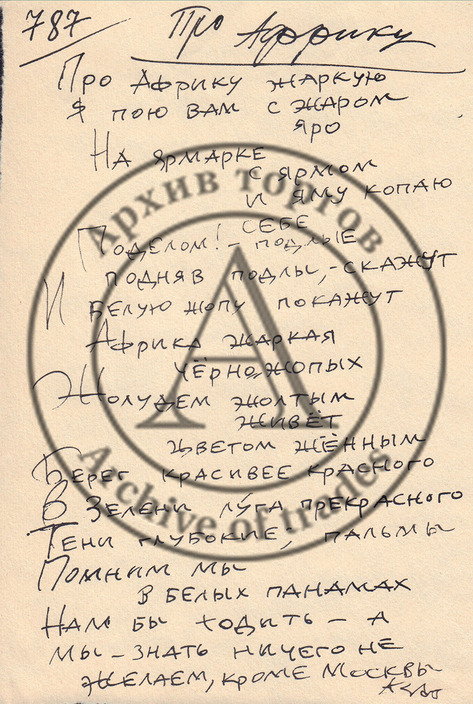 787
Про Африку
Про Африку жаркую
я пою вам с жаром
яро
На ярмарке
с ярмом
и яму копаю
себе
Поделом! – подлые
подняв подлы, – скажут
И белую жопу покажут
Африка жаркая
чёрножопых
Жолудем жолтым
живёт
цветом жённым
Берег красивее красного
В зелени луга прекрасного
Тени глубокие, пальмы
Помним мы
в белых панамах
Нам бы ходить – а
мы – знать ничего не
желаем, кроме Москвы
Архив торгов
Archive of trades